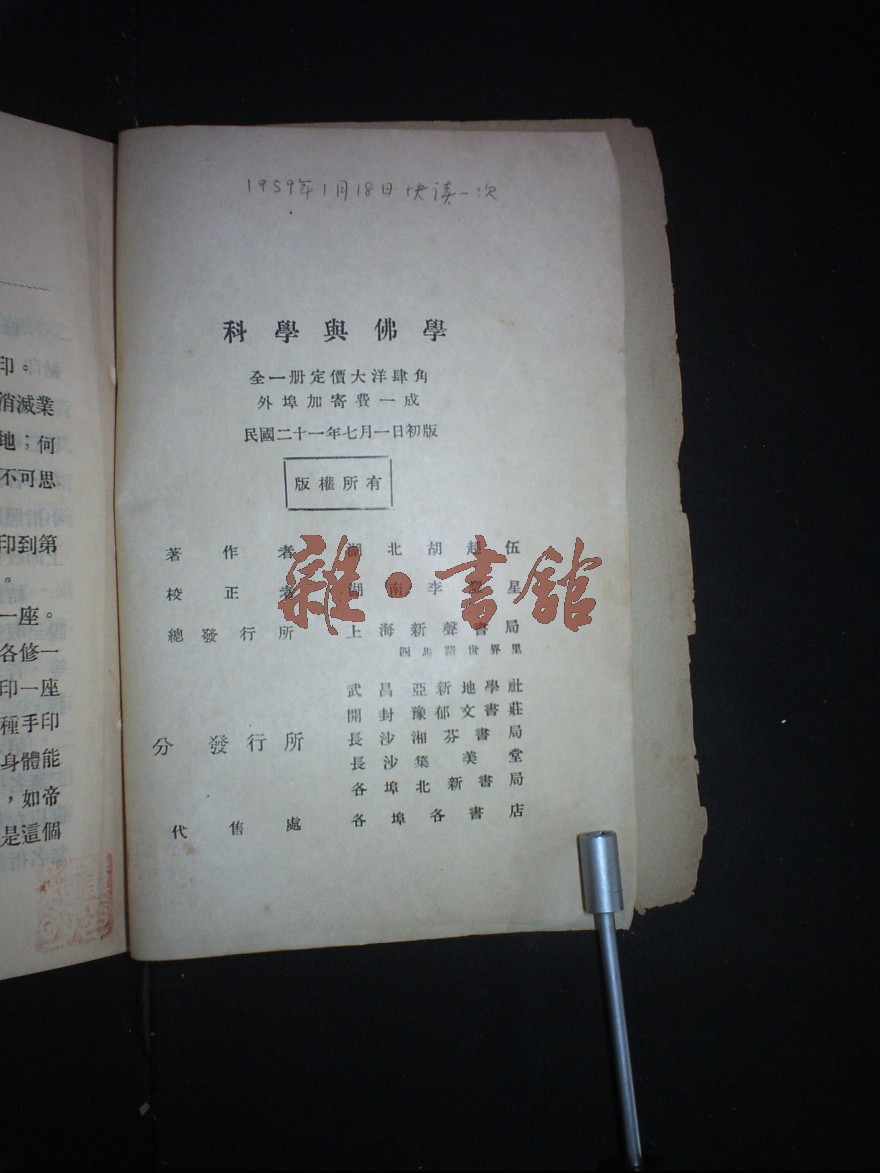 1959年1月18日快读一次
科學與佛學
全一册定價大洋肆角
外埠加寄費一成
民國二十一年七月一日初版
版權所有
著作者 湖北胡超伍
校正者 湖南李星
總發行所 上海新聲書局
四馬路世界里
武昌亞新地學社
開封豫郁文書莊
分發行所 長沙湘芬書局
長沙集美堂
各埠北新書局
代售處 各埠各書店
雜·書館
印。
消滅業
地；何
不可思
印到第
。
一座。
各修一
印一座
種手印
身體能
，如帝
是這個